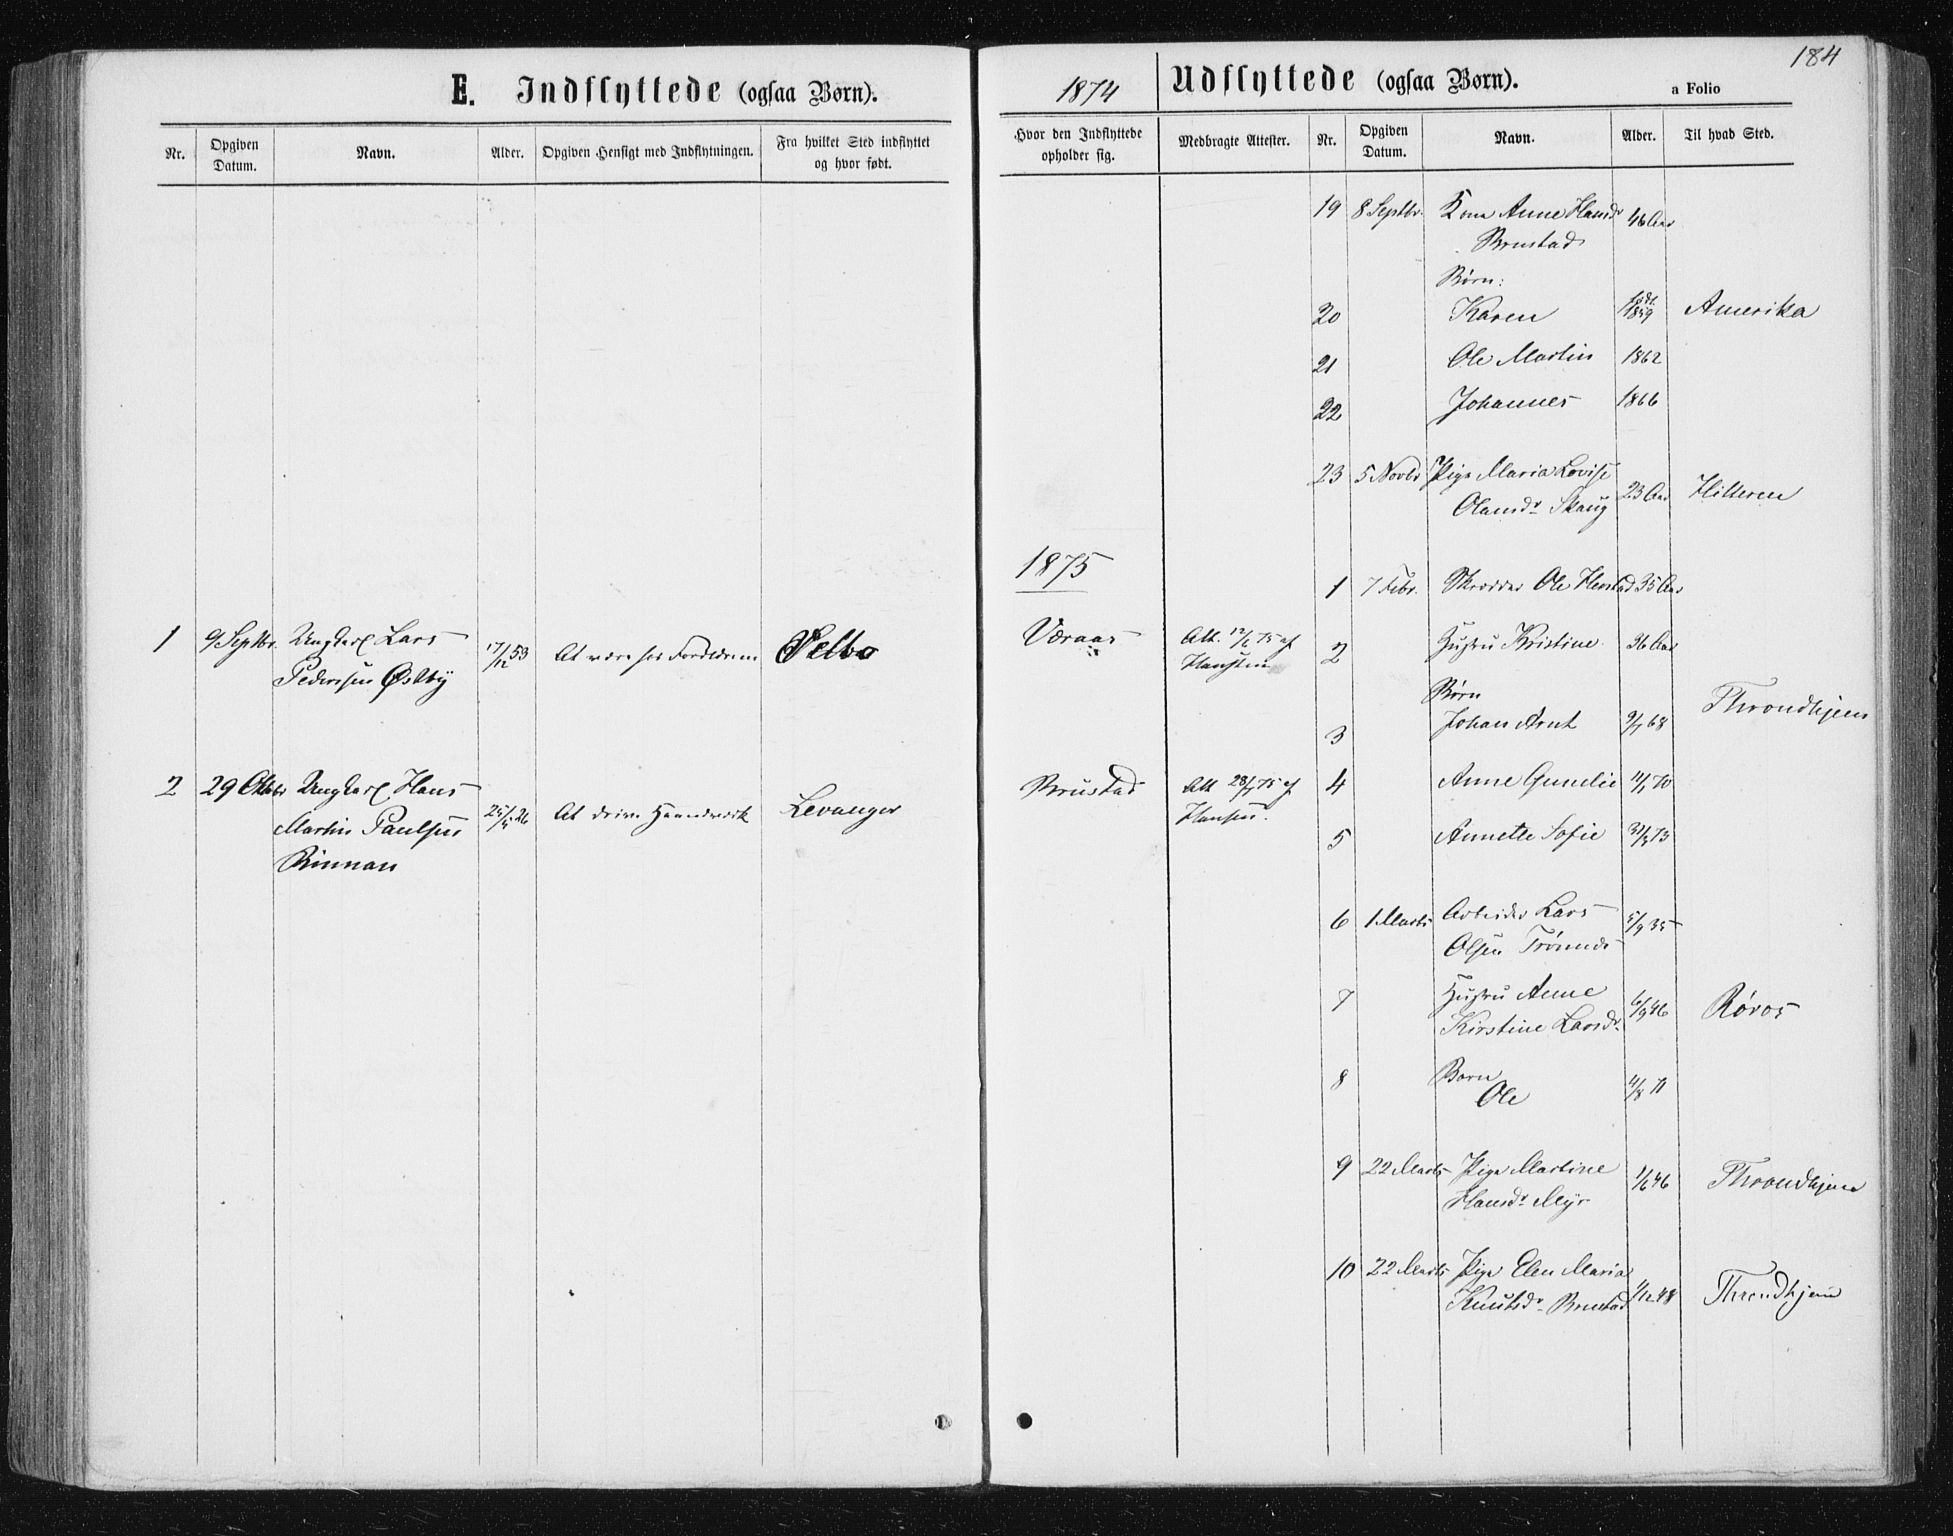 E. Indflyttede (ogsaa Børn).
Nr. Opgiven Datum. Navn. Alder. Opgiven Hensigt med Indflytningen. Fra hvilket Sted indflyttet og hvor født.
1 9 Septbr. Ungkarl Lars 17/12 53 At være hos Forældrene Selbo
Pedersen Østby
2 29 Oktbr Ungkarl Hans 25/4 26 At drive Haandværk Levanger
Martin Paulsen
Rinnan
184
1874 Udflyttede (ogsaa Børn). a Folio
Hvor den Indflyttede opholder sig. Medbragte Attester. Nr. Opgiven Datum. Navn. Alder. Til hvad Sted.
19 8 Septbr. Kone Anne Hansdr 46 Aar
Brustad
Børn:
20 Karen født 1859 Amerika
21 Ole Martin 1862
22 Johannes 1866
23 5 Novbr Pige Maria Lovise 23 Aar Hitteren
Olausdr Skaug
1875
1 7 Febr. Skrædder Ole Herstad 35 Aar
Væraas Att. 75 af
Hansen
2 Hustru Kristine 36 Aar
Børn
3 Johan Arnt 9/7 68 Throndhjem
Brustad Att 75 af
Hansen.
4 Anne Gunelie 11/1 70
5 Annette Sofie 73
6 1 Marts Arbeider Lars 5/9 35
Olsen Trønnes
7 Hustru Anne 6/9 46 Røros
Kirstine Larsdr.
8 Barn 11/8 71
Ole
9 22 Marts Pige Martine 1/6 46 Throndhjem
Hansdr Myr
10 22 Marts Pige Elen Maria 1/12 48 Throndhjem
Knutsdr Brustad